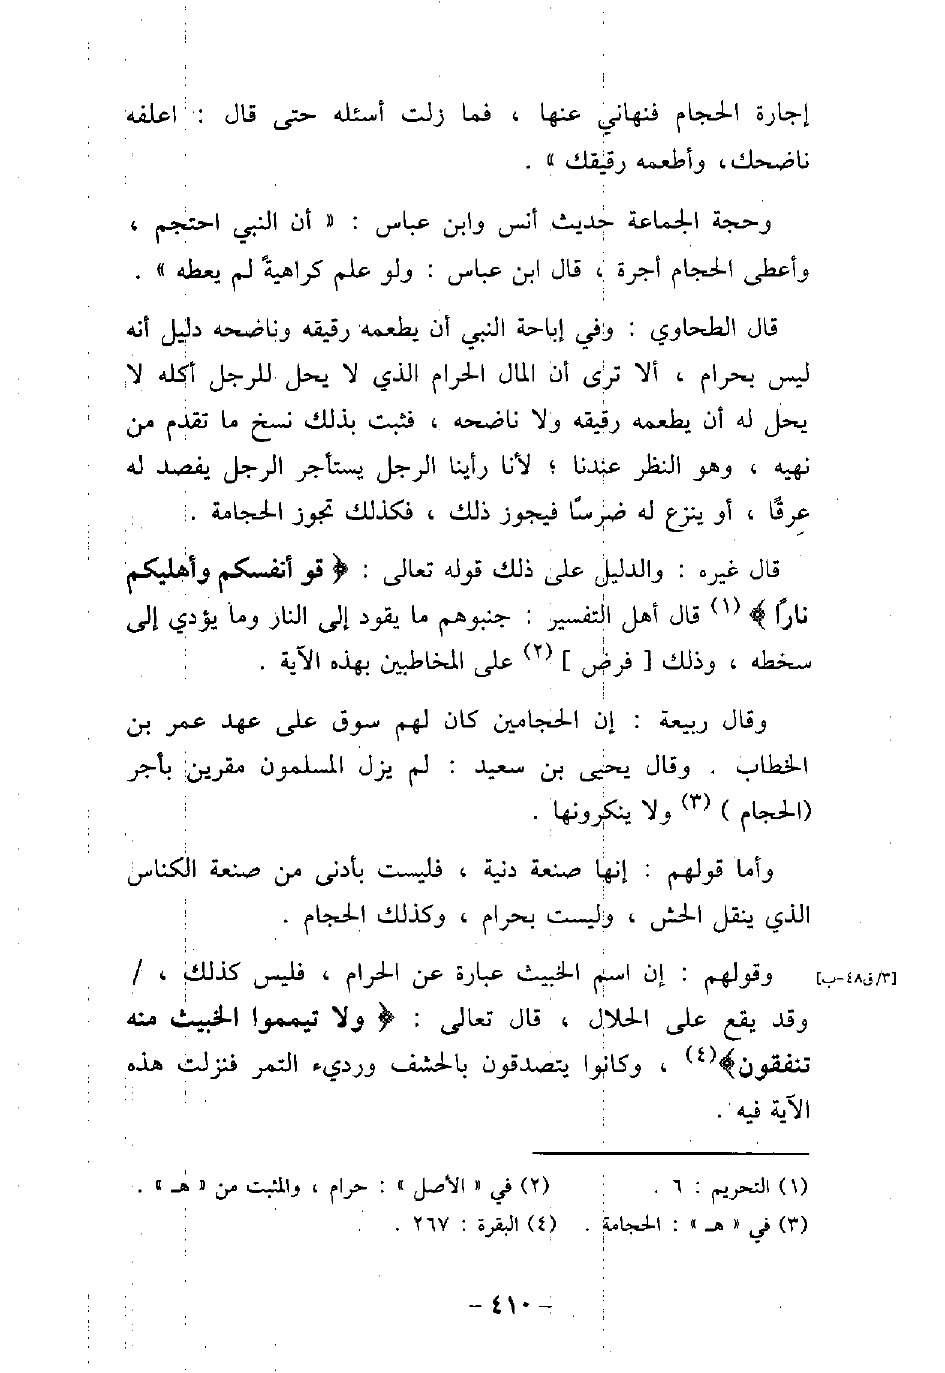 إجارة الحجام فنهاني عنها ، فما زلت أسئله حتى قال : اعلفه
ناضحك، وأطعمه رقيقك » .
وحجة الجماعة حديث أنس وابن عباس : « أن النبي احتجم ،
وأعطى الحجام أجرة ، قال ابن عباس : ولو علم كراهيةً لم يعطه » .
قال الطحاوي : وفي إباحة النبي أن يطعمه رقيقه وناضحه دليل أنه
ليس بحرام ، ألا ترى أن المال الحرام الذي لا يحل للرجل أكله لا
يحل له أن يطعمه رقيقه ولا ناضحه ، فثبت بذلك نسخ ما تقدم من
نهيه ، وهو النظر عندنا ؛ لأنا رأينا الرجل يستأجر الرجل يفصد له
عرقًا ، أو ينزع له ضرسًا فيجوز ذلك ، فكذلك تجوز الحجامة .
قال غيره : والدليل على ذلك قوله تعالى : ﴿ قو أنفسكم وأهليكم
نارًا ﴾ (١) قال أهل التفسير : جنبوهم ما يقود إلى النار وما يؤدي إلى
سخطه ، وذلك [ فرض ] (٢) على المخاطبين بهذه الآية .
وقال ربيعة : إن الحجامين كان لهم سوق على عهد عمر بن
الخطاب . وقال يحيى بن سعيد : لم يزل المسلمون مقرين بأجر
(الحجام ) (٣) ولا ينكرونها .
وأما قولهم : إنها صنعة دنية ، فليست بأدنى من صنعة الكناس
الذي ينقل الحش ، وليست بحرام ، وكذلك الحجام .
وقولهم : إن اسم الخبيث عبارة عن الحرام ، فليس كذلك ، / [٣/ق٤٨-ب]
وقد يقع على الحلال ، قال تعالى : ﴿ ولا تيمموا الخبيث منه
تنفقون﴾(٤) ، وكانوا يتصدقون بالحشف ورديء التمر فنزلت هذه
الآية فيه .
(١) التحريم : ٦ . (٢) في « الأصل » : حرام ، والمثبت من « هـ » .
(٣) في « هـ » : الحجامة . (٤) البقرة : ٢٦٧ .
- ٤١٠ -